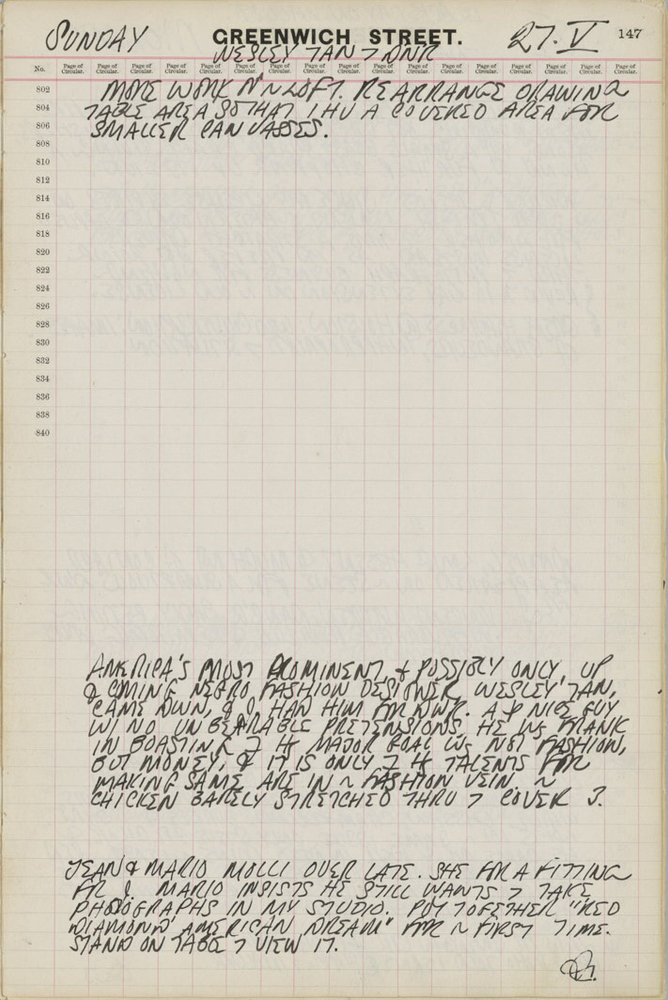 SUNDAY GREENWICH STREET. 27.V 147
WESLEY TAN 7 DNR
No. Page of Circular. Page of Circular. Page of Circular. Page of Circular. Page of Circular. Page of Circular. Page of Circular. Page of Circular. Page of Circular. Page of Circular. Page of Circular. Page of Circular. Page of Circular. Page of Circular. Page of Circular. Page of Circular. Page of Circular.
802 MORE WORK N LOFT. REARRANGE DRAWING
804 TABLE AREA SO THAT I HV A COVERED AREA FOR
806 SMALLER CANVASSES.
808
810
812
814
816
818
820
822
824
826
828
830
832
834
836
838
840
AMERICA'S MOST PROMINENT, & POSSIBLY ONLY, UP
& COMING NEGRO FASHION DESIGNER, WESLEY TAN,
CAME DWN, & I HAD HIM FR DNR. A NICE GUY
W/ NO UNBEARABLE PRETENSIONS, HE WS FRANK
IN BOASTING T HS MAJOR GOAL WS NOT FASHION,
BUT MONEY, & IT IS ONLY T HS TALENTS FOR
MAKING SAME ARE IN ~ FASHION VEIN ~
CHICKEN BARELY STRETCHED THRU 7 COVER 3.
JEAN & MARIO MOLLI OVER LATE. SHE FOR A FITTING
FR &. MARIO INSISTS HE STILL WANTS 7 TAKE
PHOTOGRAPHS IN MY STUDIO. PUT TOGETHER "RED
DIAMOND AMERICAN DREAM" FOR ~ FIRST TIME.
STAND ON TABLE 7 VIEW IT.